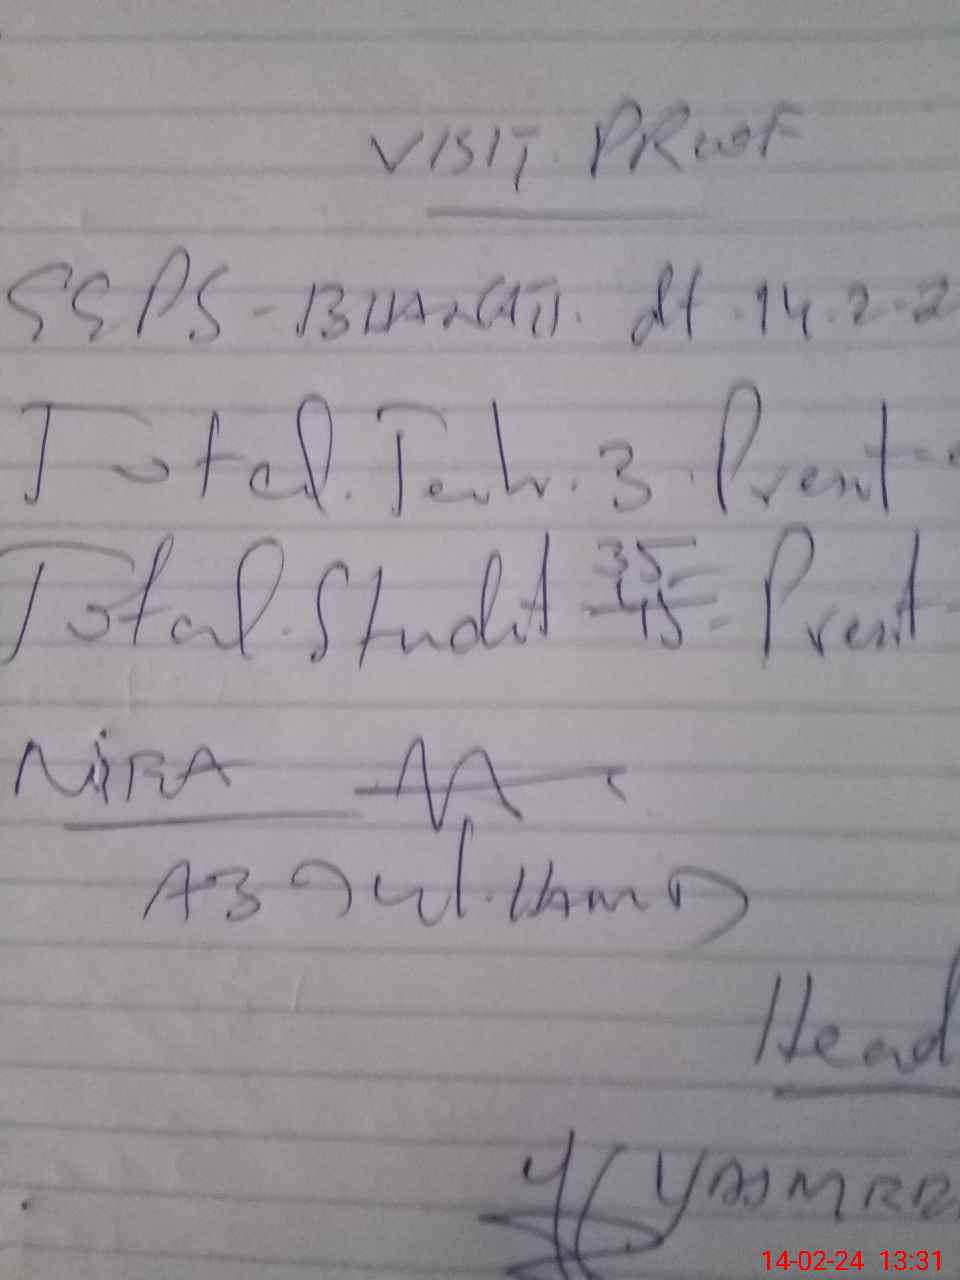 VISIT PROOF
SSPS - dt. 14.2.2
Total. Teachr. 3. Present -
Total. Studnt 35 45 - Present -
NiRA
ABDul. HAMID
Head
YASMEEN
14-02-24 13:31